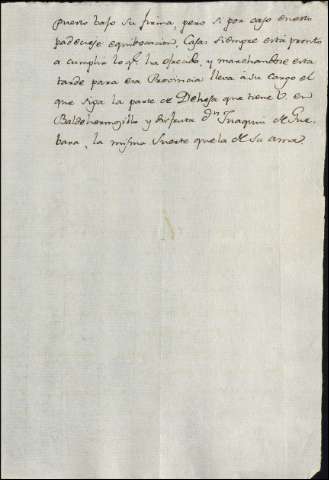 puesto bajo su firma, pero si por caso en esto
padeciese equibocacion, Casas siempre está pronto
a cumplir lo q.e ha ofrecido, y marchandose esta
tarde para esa Provincia lleva à su cargo el
que siga la parte de Dehesa que tiene V en
Baldehermosillo y disfruta d.n Joaquin de Gue-
bara, la misma suerte que la de su ama.